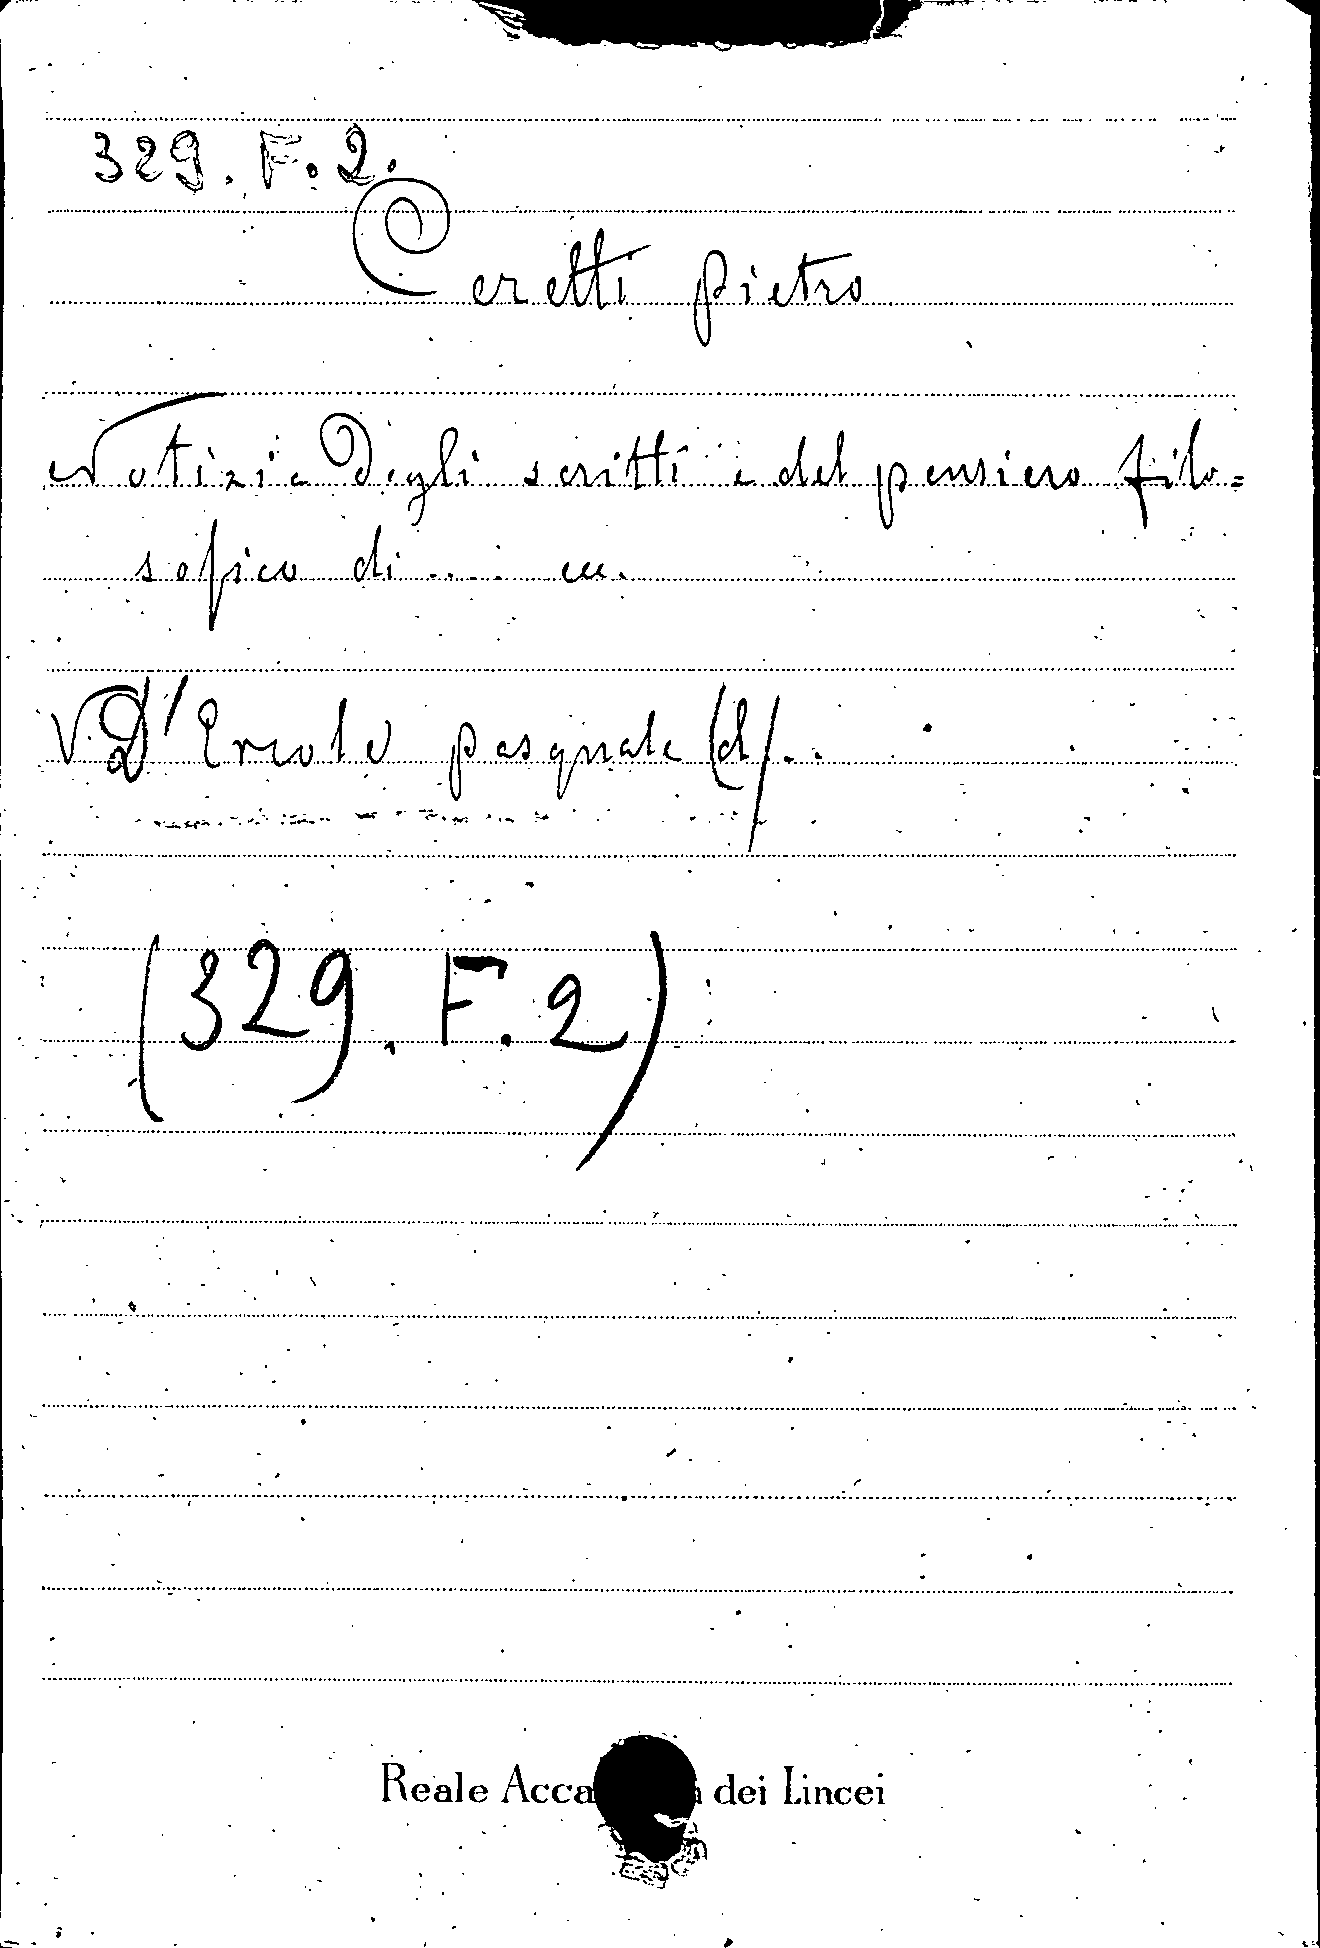 329. F. 2.
Ceretti Pietro
Notizia degli scritti e del pensiero filo=
sofico di .... ecc.
V. D'Ercole Pasquale (d) ..
(329. F. 2)
Reale Acca dei Lincei